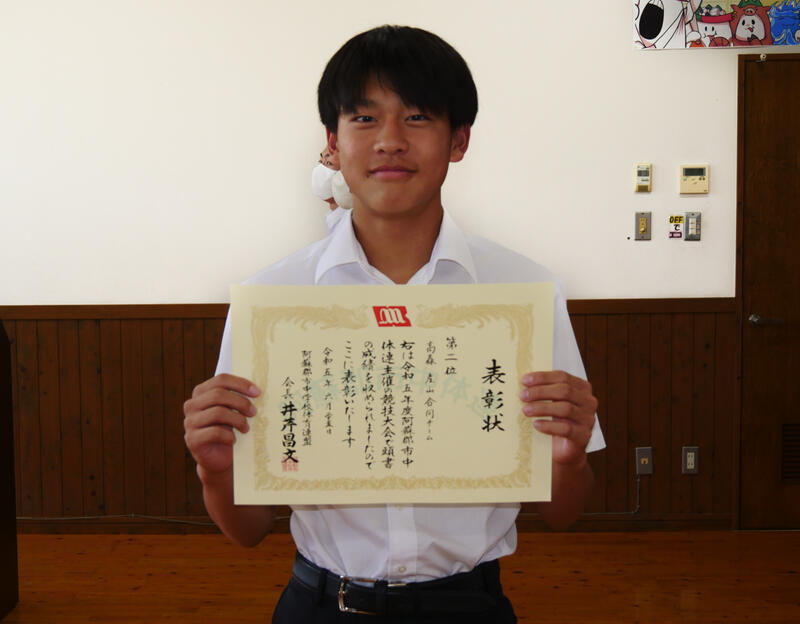 表彰状
第二位
高森 産山 合同チーム
右は令和五年度阿蘇郡市中
体連主催の競技大会で頭書
の成績を収められましたので
ここに表彰いたします
令和五年六月
阿蘇郡市中学校体育連盟
会長 井芹昌文
OFF
で